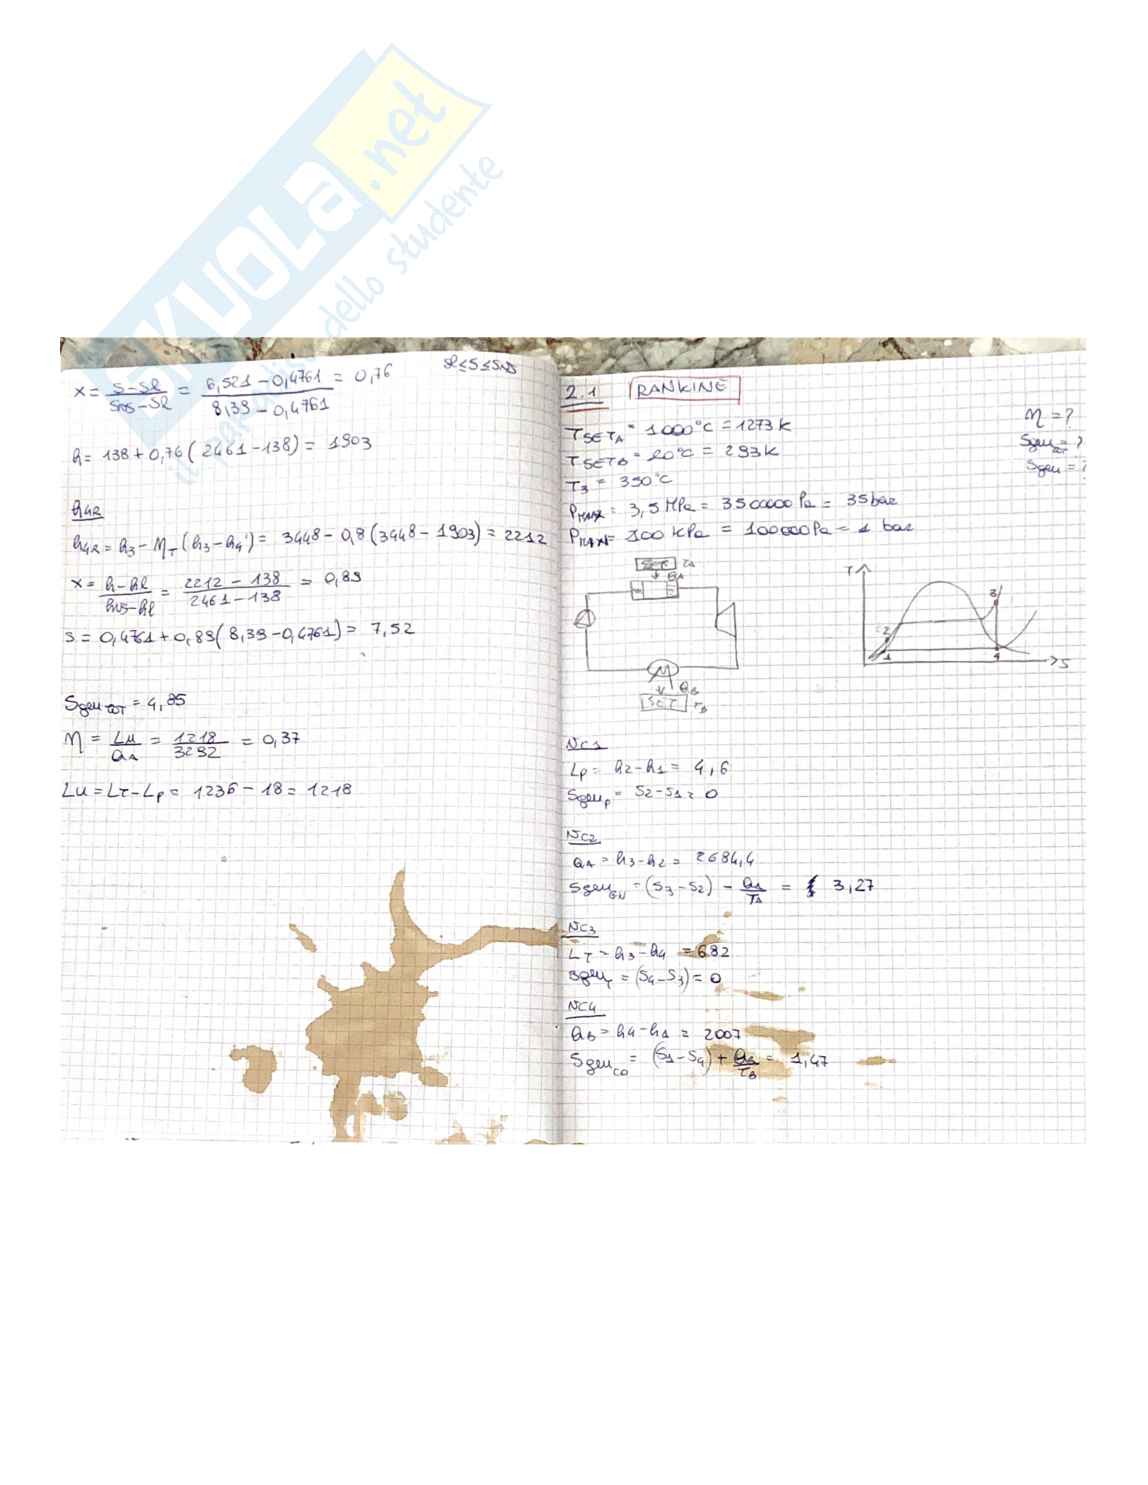 SKUOLA.net
il paradiso dello studente
x = (s-sl)/(svs-sl) = (6,521-0,4761)/(8,39-0,4761) = 0,76
sl≤s≤svs
h = 138+0,76(2461-138) = 1903
h4R
h4R = h3-ηT(h3-h4') = 3448-0,8(3448-1903) = 2212
x = (h-hl)/(hvs-hl) = (2212-138)/(2461-138) = 0,89
s = 0,4761+0,89(8,39-0,4761) = 7,52
Sgen TOT = 4,85
η = Lu/QA = 1218/3292 = 0,37
Lu = LT-LP = 1236-18 = 1218
2.1 RANKINE
TSETA = 1000°C = 1273K
TSETB = 20°C = 293K
T3 = 350°C
PMAX = 3,5 MPa = 3500000 Pa = 35 bar
PMIN = 100 kPa = 100000 Pa = 1 bar
η = ?
Sgen TOT = ?
Sgen = ?
SET TA
QA
QB
SET TB
T
3
2
1
4
S
NC1
LP = h2-h1 = 4,6
SgenP = S2-S1 = 0
NC2
QA = h3-h2 = 2684,4
SgenGV = (S3-S2) - QA/TA = 3,27
NC3
LT = h3-h4 = 682
SgenT = (S4-S3) = 0
NC4
QB = h4-h1 = 2007
SgenCO = (S1-S4) + QB/TB = 1,47